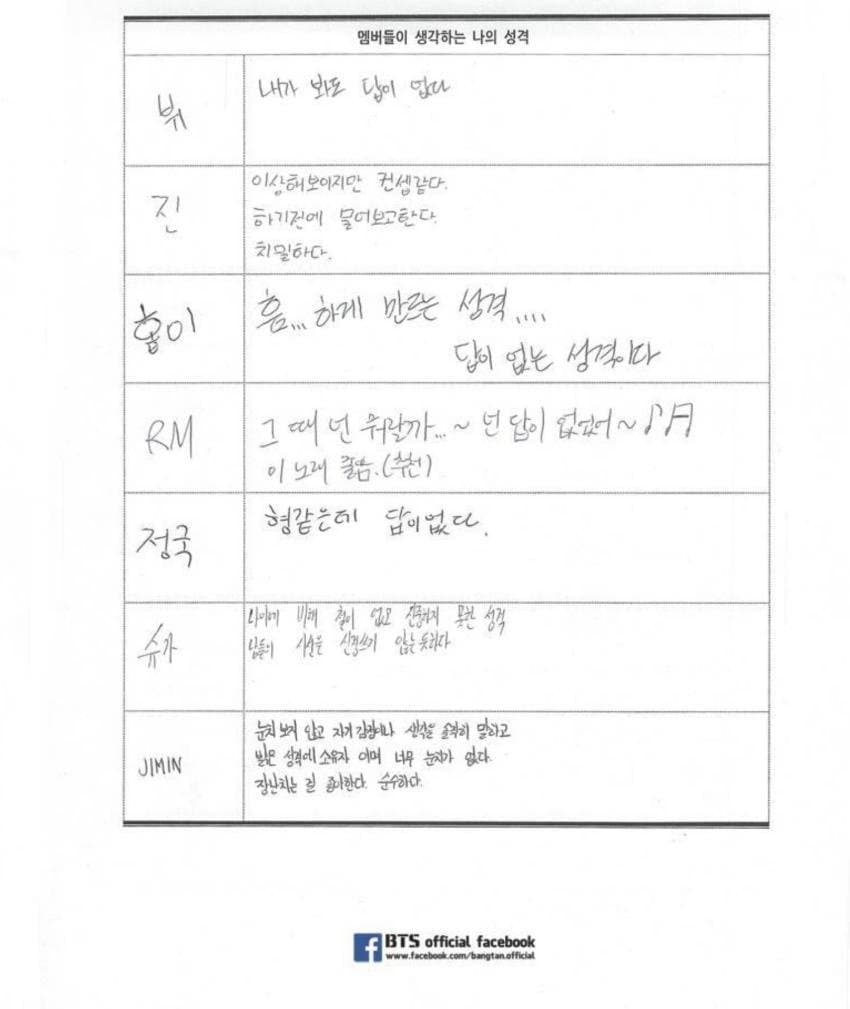 멤버들이 생각하는 나의 성격
뷔
내가 봐도 답이 없다
진
이상해보이지만 컨셉같다.
하기전에 물어보고한다.
치밀하다.
홉이
흠... 하게 만드는 성격....
답이 없는 성격이다
RM
그 때 넌 뭐랄까...~ 넌 답이 없었어~♪♬
이 노래 좋음.(추천)
정국
형같은데 답이없다.
슈가
나이에 비해 철이 없고 신중하지 못한 성격
남들의 시선은 신경쓰지 않는 듯하다
JIMIN
눈치 보지 않고 자기 감정이나 생각을 솔직히 말하고
밝은 성격에 소유자 이며 너무 눈치가 없다.
장난치는 걸 좋아한다. 순수하다.
BTS official facebook
www.facebook.com/bangtan.official